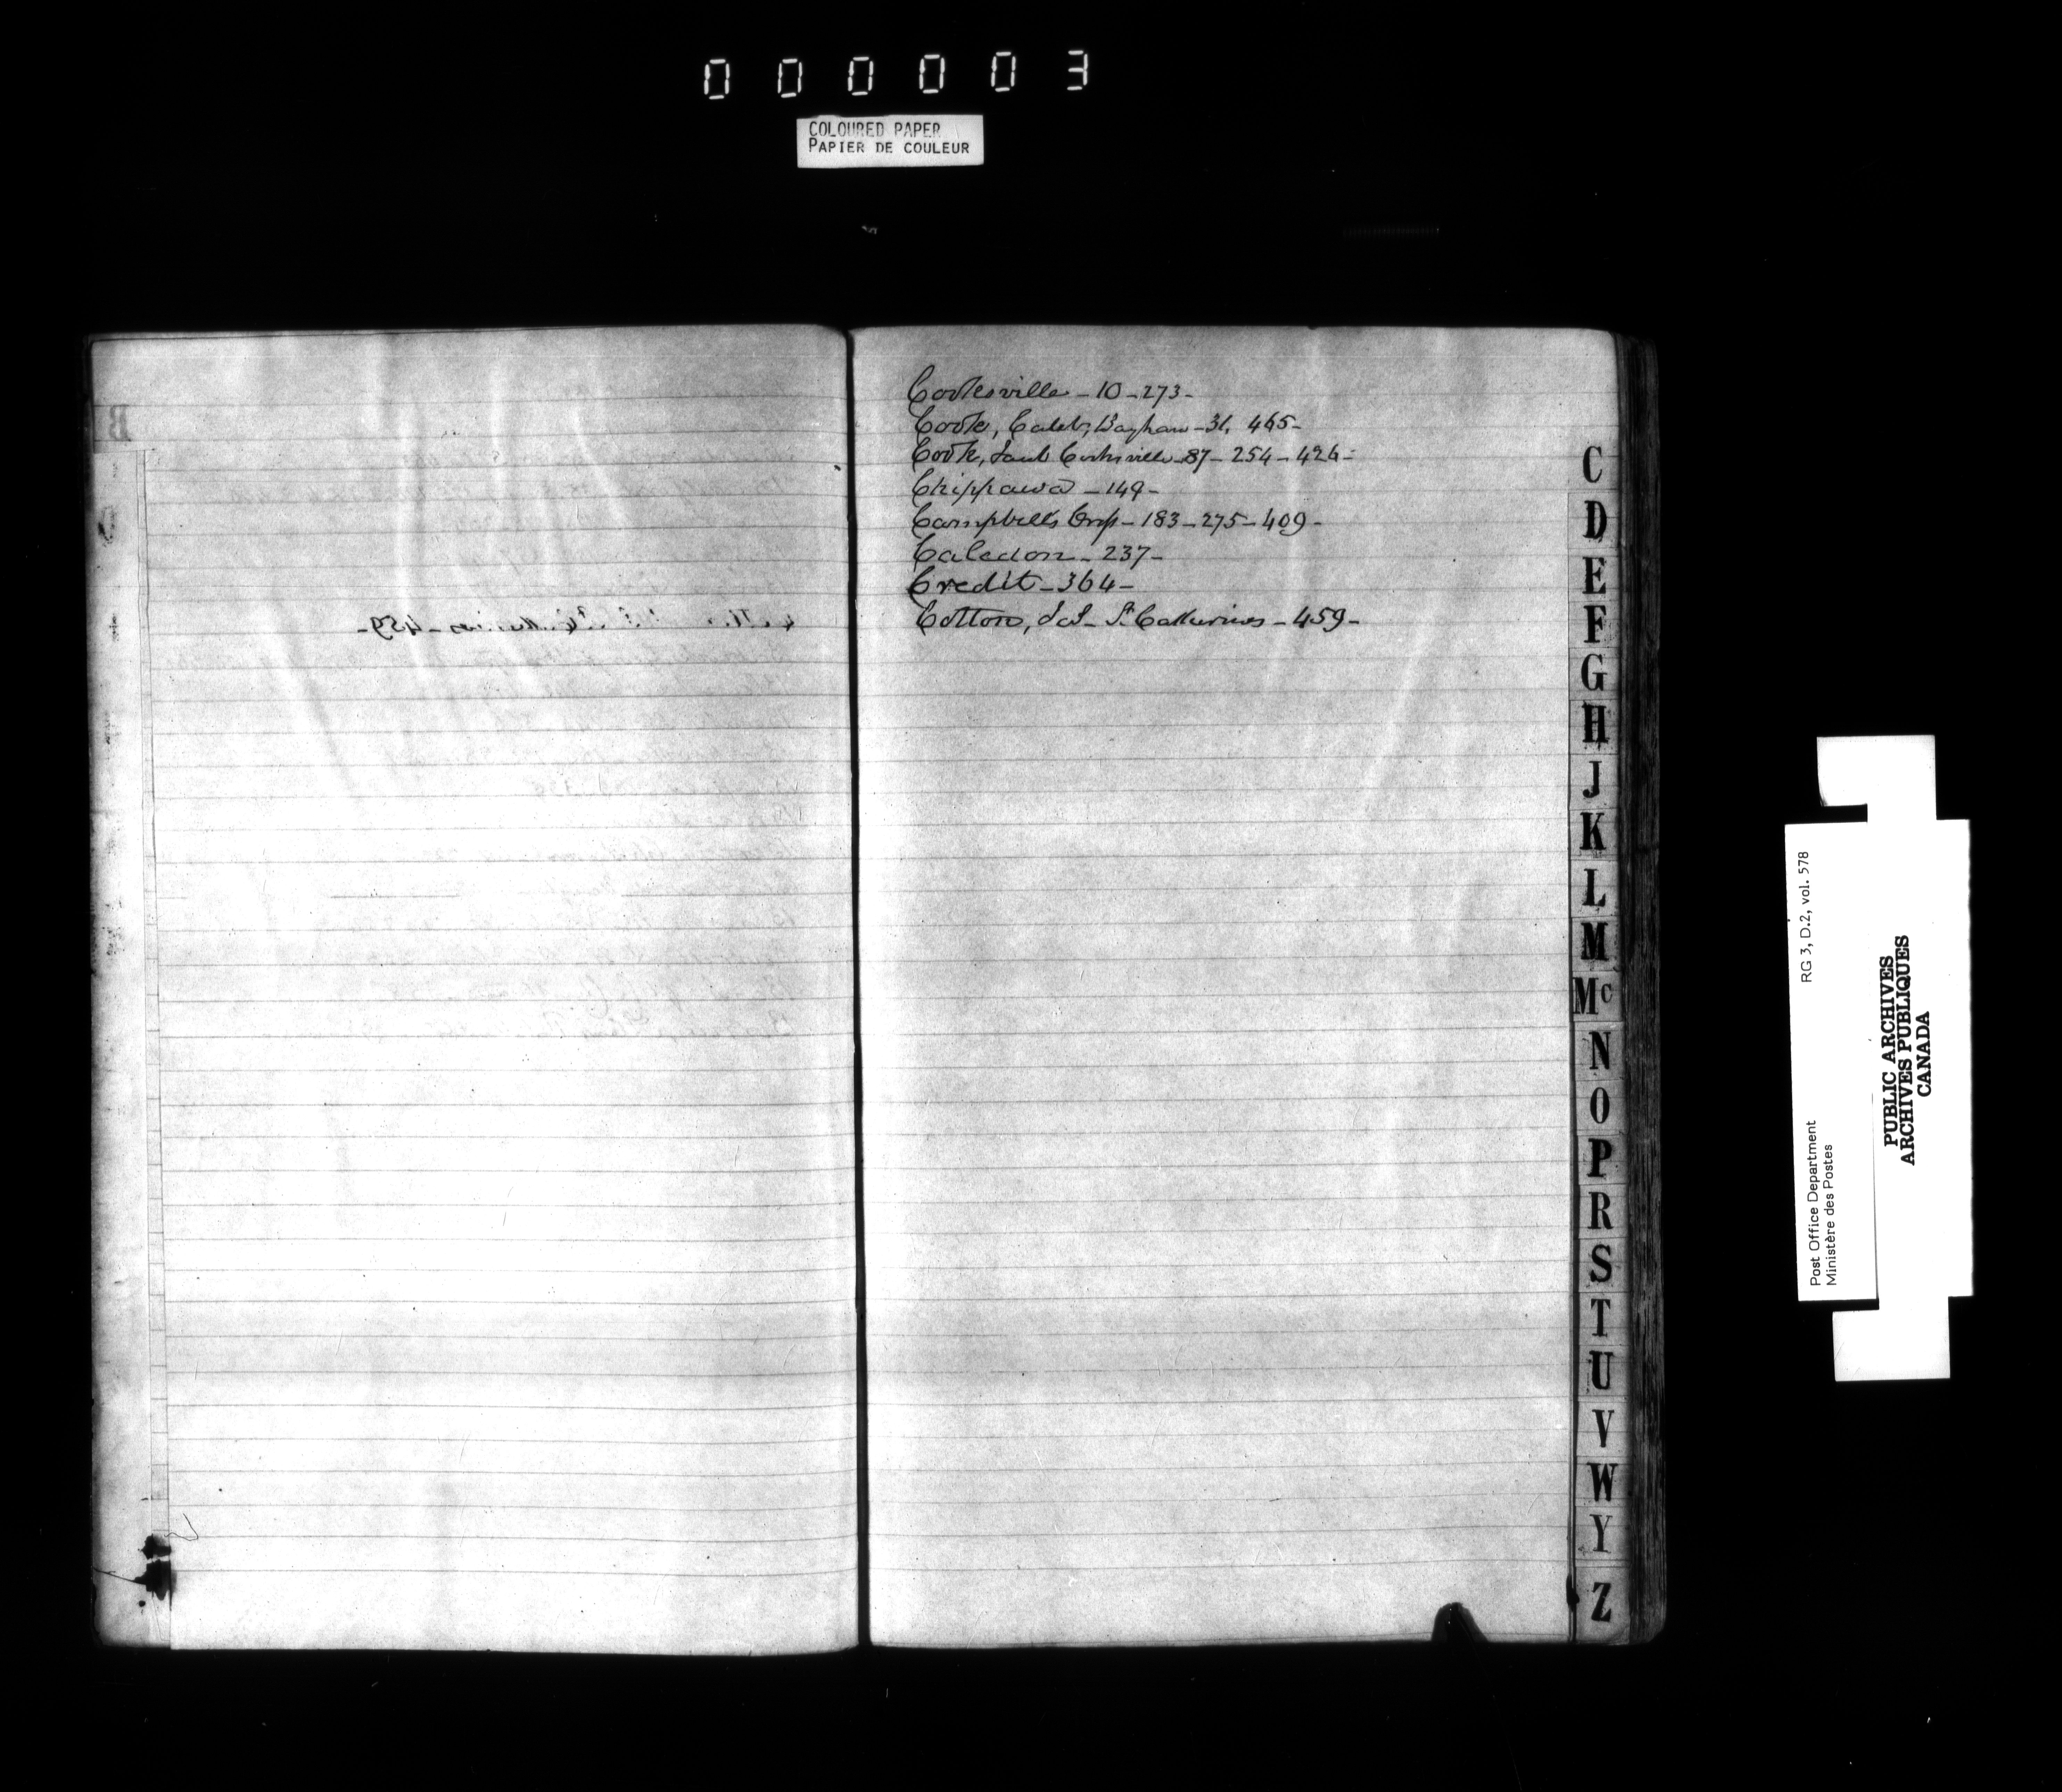 000003
COLOURED PAPER
PAPIER DE COULEUR
Cooksville - 10 - 273 -
Cook, Caleb, Bayham - 31, 465 -
Cook, Cooksville - 87 - 254 - 424 -
Chippawa - 149 -
Campbell's - 183 - 275 - 409 -
Caledon - 237 -
Credit - 364 -
Cotton, St Catherines - 459 -
B
C
D
E
F
G
H
J
K
L
M
Mc
N
O
P
R
S
T
U
V
W
Y
Z
RG 3, D.2, vol. 578
Post Office Department
Ministère des Postes
PUBLIC ARCHIVES
ARCHIVES PUBLIQUES
CANADA